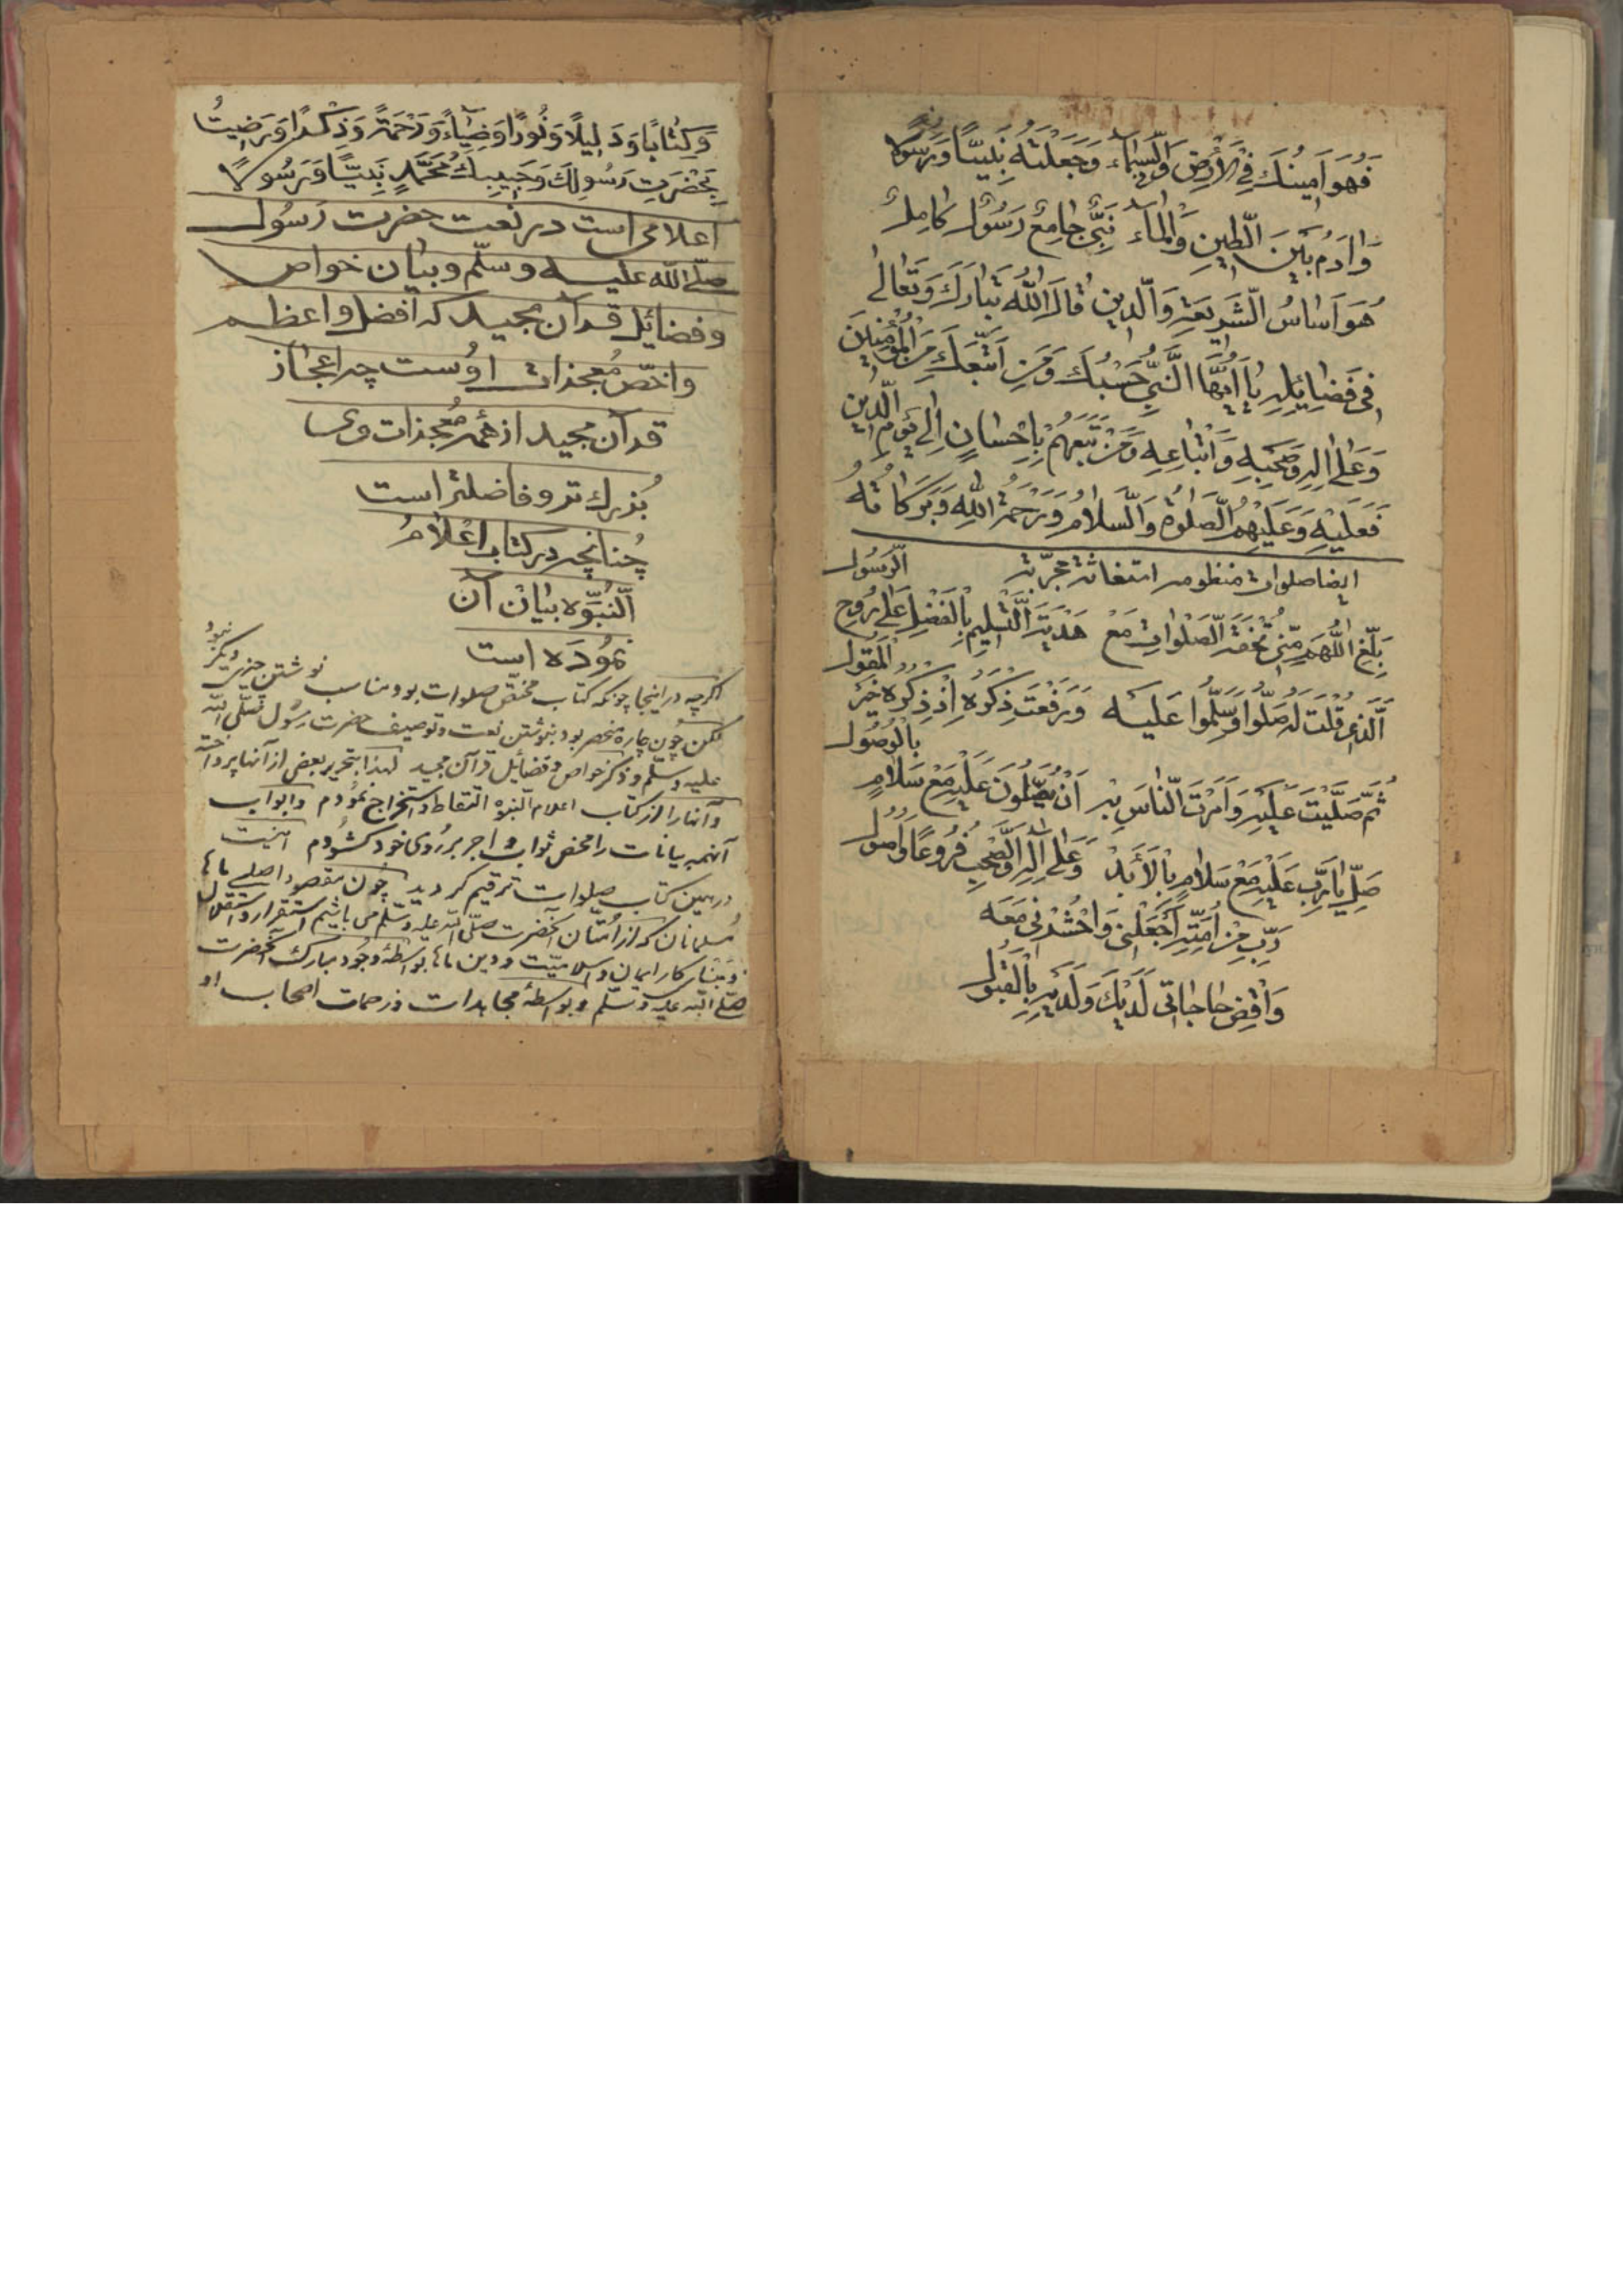 فَهُوَ اَمِينُكَ فِي الْأَرْضِ وَالسَّمَاءِ وَجَعَلْتَهُ نَبِيًّا وَرَسُولًا
وَاٰدَمُ بَيْنَ الطِّينِ وَالْمَاءِ نَبِيٌّ جَامِعٌ رَسُولٌ كَامِلٌ
هُوَ اَسَاسُ الشَّرِيعَةِ وَالدِّينِ قَالَ اللهُ تَبَارَكَ وَتَعَالٰى
فِي فَضَائِلِهِ يَا اَيُّهَا النَّبِيُّ حَسْبُكَ وَمَنِ اتَّبَعَكَ مِنَ الْمُؤْمِنِينَ
وَعَلٰى اٰلِهِ وَصَحْبِهِ وَاَتْبَاعِهِ وَمَنْ تَبِعَهُمْ بِاِحْسَانٍ اِلٰى يَوْمِ الدِّينِ
فَعَلَيْهِ وَعَلَيْهِمُ الصَّلٰوةُ وَالسَّلَامُ وَرَحْمَةُ اللهِ وَبَرَكَاتُهُ
ايضا صلوات منظومه استغاثه مجربه
بَلِّغِ اللّٰهُمَّ مِنِّي تُحْفَةَ الصَّلَوَاتِ مَعْ هَدْيَةِ التَّسْلِيمِ بِالْفَضْلِ عَلٰى رُوحِ الرَّسُول
الَّذِي قُلْتَ لَهُ صَلُّوا وَسَلِّمُوا عَلَيْهِ وَرَفَعْتَ ذِكْرَهُ اِذْ ذِكْرُهُ خَيْرُ الْمَقُول
ثُمَّ صَلَّيْتَ عَلَيْهِ وَاَمَرْتَ النَّاسَ بِهِ اَنْ يُصَلُّونَ عَلَيْهِ مَعْ سَلَامٍ بِالْوُصُول
صَلِّ يَا رَبِّ عَلَيْهِ مَعْ سَلَامٍ بِالْأَبَدْ وَعَلَى الْاٰلِ وَالصَّحْبِ فُرُوعًا وَاُصُول
رَبِّ مِنْ اُمَّتِهِ اجْعَلْنِي وَاحْشُرْنِي مَعَهُ
وَاقْضِ حَاجَاتِي لَدَيْكَ وَلَدَيْهِ بِالْقَبُول
وَكِتَابًا وَدَلِيلًا وَنُورًا وَضِيَاءً وَرَحْمَةً وَذِكْرًا وَرَضِيتُ
بِحَضْرَتِ رَسُولِكَ وَحَبِيبِكَ مُحَمَّدٍ نَبِيًّا وَرَسُولًا
اعلامی است در نعت حضرت رَسُول
صلّى الله عليه وسلّم وبيان خواص
وفضائل قرآن مجيد كه افضل واعظم
واخصّ مُعجزات اوُست چه اعجاز
قرآن مجيد از همه مُعجزات وى
بُزرك تر وفاضلتر است
چُنانچه در كتاب اعْلَامُ
النُّبُوَّه بيان آن
نمُودَه است
اكرچه در اينجا چونكه كتاب مختص صلوات بود مناسب نوشتن چيزى ديكر نبود
لكن چون چاره منحصر بود بنوشتن نعت وتوصيف حضرت رسُول صلّى الله
عليه وسلّم وذكر خواص وفضائل قرآن مجيد لهذا بتحرير بعض از آنها پرداخته
وآنها را از كتاب اعلام النبوه التقاط واستخراج نمودم وابواب
آنهمه بيانات را محض ثواب واجر بر روى خود كشودم اينست
در همين كتاب صلوات ترقيم كرديد چون مقصود اصلى ما
مسلمانان كه از امتان آنحضرت صلّى الله عليه وسلّم مى باشيم استقرار واستقلال
كار ايمان واسلاميّت ودين ما بواسطهٔ وجود مبارك آنحضرت
صلّى الله عليه وسلّم وبواسطهٔ مجاهدات وزحمات اصحاب او